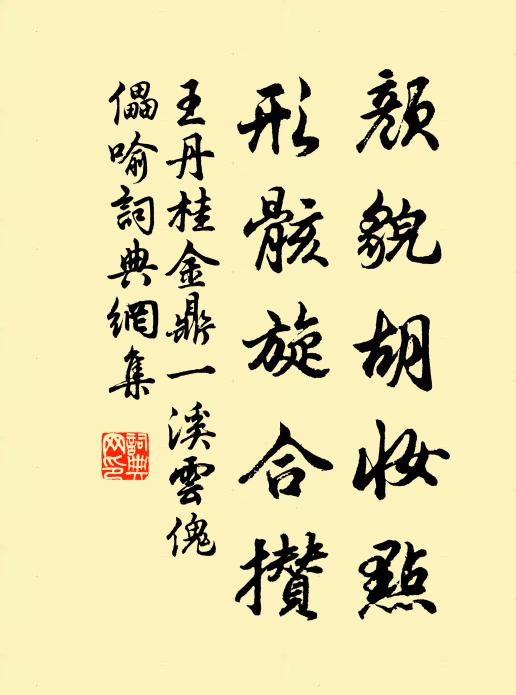 顏貌胡妝點
形骸旋合攢
王丹桂金鼎一溪雲傀
儡喻詞典網集
詞典
网印